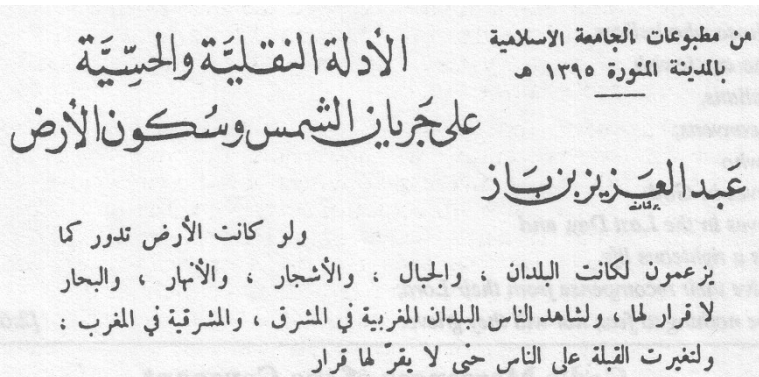 من مطبوعات الجامعة الاسلامية
بالمدينة المنورة ١٣٩٥ هـ
الأدلة النقليَّة والحسِّيَّة
على جَريان الشمس وسُكون الأرض
عَبد العَزيز بن بَاز
ولو كانت الأرض تدور كما
يزعمون لكانت البلدان ، والجبال ، والأشجار ، والأنهار ، والبحار
لا قرار لها ، ولشاهد الناس البلدان المغربية في المشرق ، والمشرقية في المغرب ،
ولتغيرت القبلة على الناس حتى لا يقرّ لها قرار